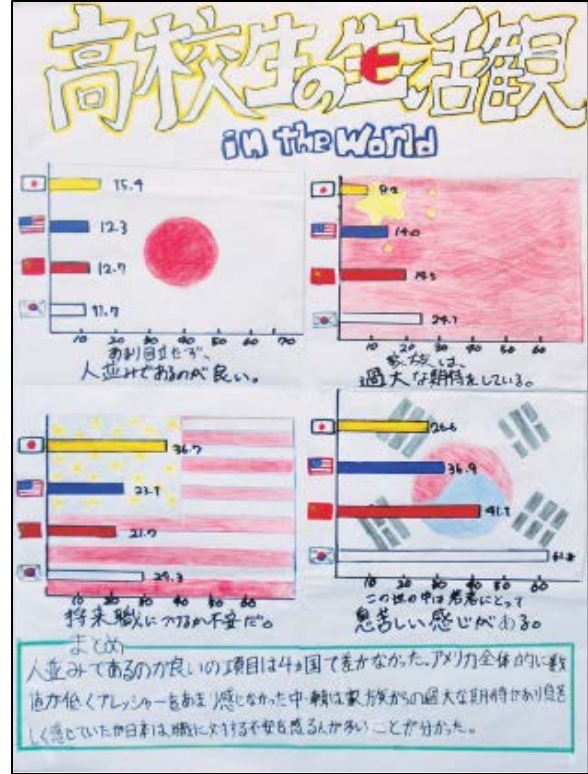 高校生の生活観
in the World
15.4
12.3
12.7
11.7
10 20 30 40 50 60 70
あまり目立たず、
人並みであるのが良い。
9.2
14.0
24.7
10 20 30 40 50 60
家族は、
過大な期待をしている。
36.7
21.7
29.3
10 20 30 40 50 60
将来職につけるか不安だ。
36.9
41.1
10 20 30 40 50 60
この世の中は若者にとって
息苦しい感じがある。
まとめ
人並みであるのが良いの項目は4ヵ国で差がなかった。アメリカ全体的に数
値が低くプレッシャーをあまり感じなかった中・韓は家族からの過大な期待があり息苦
しく感じていたが日本は、職に対する不安を感る人が多いことが分かった。